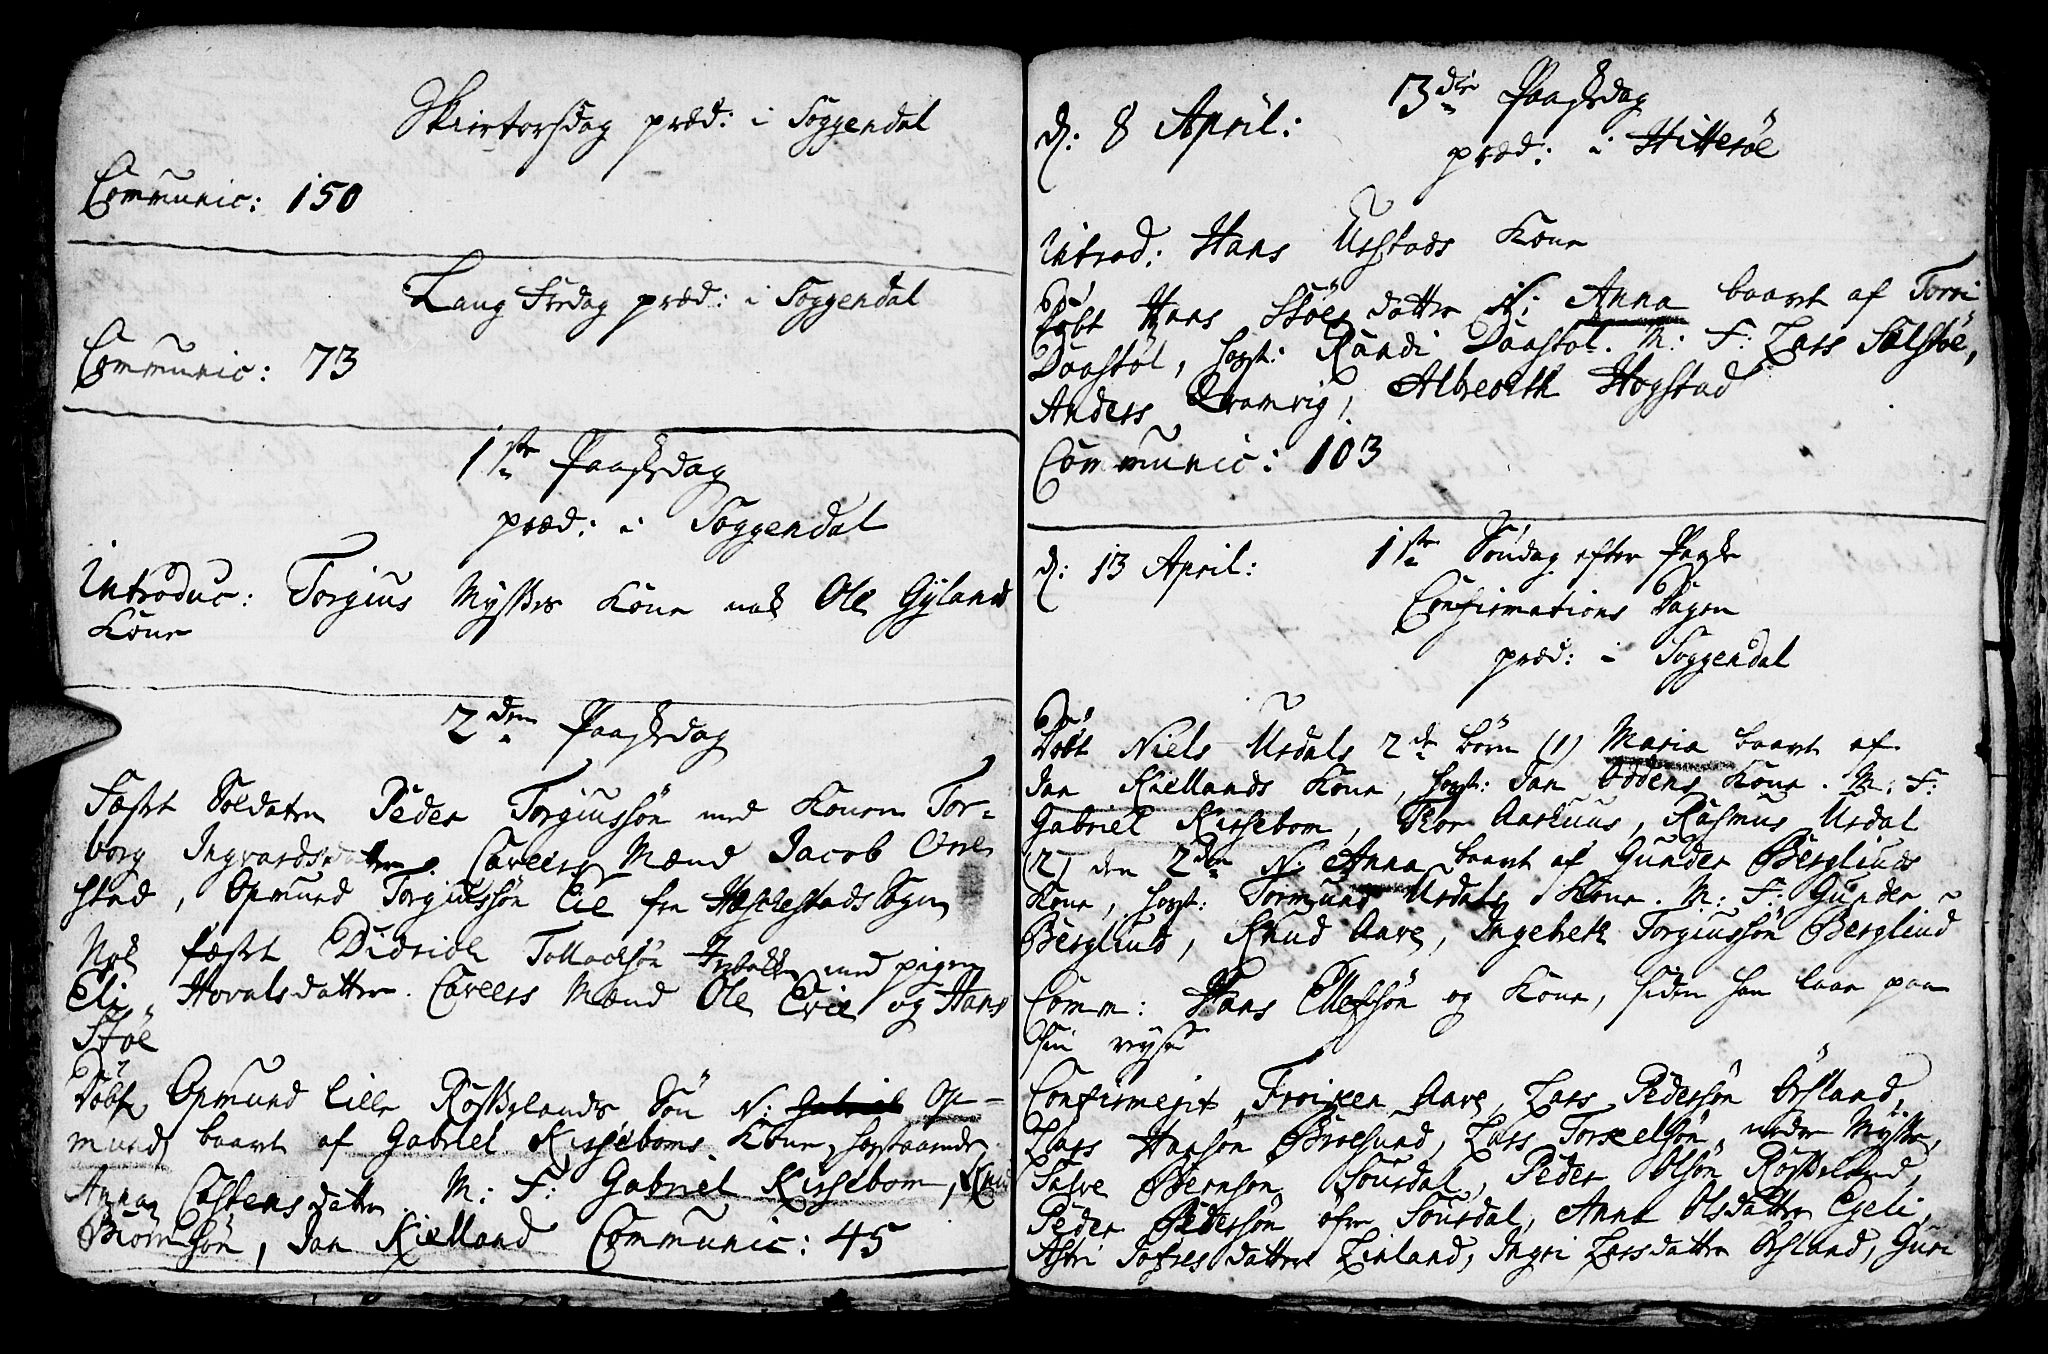 Skiertorsdag præd: i Soggendal
Communic: 150
Lang Fredag præd: i Soggendal
Communic: 73
1ste Paaskedag
præd: i Soggendal
Introduc: Torgius Mysses Kone nok Ole Gylands
Kone
2den Paaskedag
Fæstet Soldaten Peder Torgiussøn med Konen Tor=
borg Ingvardsdatter. Caveers Mænd Jacob Orre
stad, Opmund Torgiussøn Eie fra Heschestads Sogn
Nok fæstet Didrich Tollachsøn med pigen
Eli Hovalsdatter. Caveers Mænd Ole Evie og Hans
Støe
Døbt Opmund lille Røsslands Søn N: Gabriel Op-
mund baaret af Gabriel Kirseboms Kone, hosstaaende
Anna Castensdatter. M: F: Gabriel Kirsebom, Knud
Biørnsøn, Jan Kielland Communic: 45
d: 8 April: 3die Paaskedag
præd: i Hitterøe
Introd: Hans Urstads Kone
Døbt Hans Støes datter N: Anna baaret af Torri
Daastøl, host: Randi Daastøl. M: F: Lars Sælstøe,
Anders Qvamvig, Albrecth Hogstad
Communic: 103
d: 13 April: 1ste Søndag efter Paaske
Confirmations Dagen
præd: i Soggendal
Døbt Niels Urdals 2de børn (1) Maria baaret af
Jan Kiellands Kone, host: Jan Oddens Kone. M: F:
Gabriel Kirsebom, Thor Aarhuus, Rasmus Urdal
(2) den 2den N: Anna baaret af Gunder Berglinds
Kone, host: Tormund Urdals Kone. M: F: Gunder
Berglind, Knud Aare, Ingebreth Torgiussøn Berglind
Comm: Hans Ellefsøn og Kone, siden han laae paa
sin reyse
Confirmerit Froiken Aare, Lars Pedersøn Ørsland,
Lars Hansøn Broesund, Lars Torkelsøn nedre Mysse,
Salve Bernsøn Sousdal, Peder Olsøn Røssland,
Peder Pedersøn øfre Sousdal, Anna Olsdatter Egeli,
Astri Sofresdatter Linland, Ingri Larsdatter Ørsland, Guri